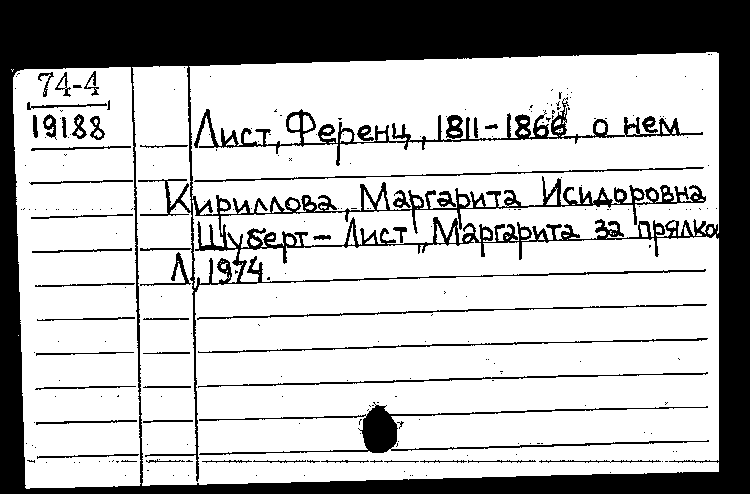 74-4
19188
Лист, Ференц, 1811-1866, о нем
Кириллова, Маргарита Исидоровна
Шуберт - Лист „Маргарита за прялко
Л., 1974.